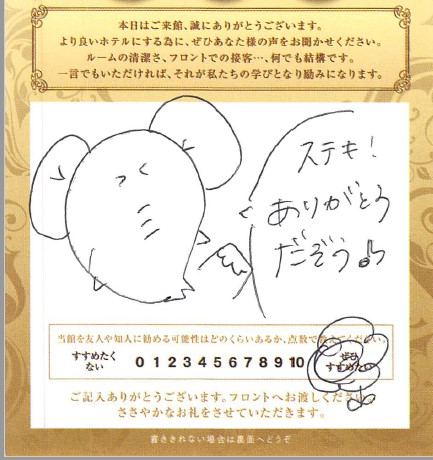 本日はご来館、誠にありがとうございます。
より良いホテルにする為に、ぜひあなた様の声をお聞かせください。
ルームの清潔さ、フロントでの接客…、何でも結構です。
一言でもいただければ、それが私たちの学びとなり励みになります。
ステキ!
ありがとう
だぞう♪
当館を友人や知人に勧める可能性はどのくらいあるか、点数で教えてください。
すすめたく
ない
0 1 2 3 4 5 6 7 8 9 10
ぜひ
すすめたい
ご記入ありがとうございます。フロントへお渡しください。
ささやかなお礼をさせていただきます。
書ききれない場合は裏面へどうぞ